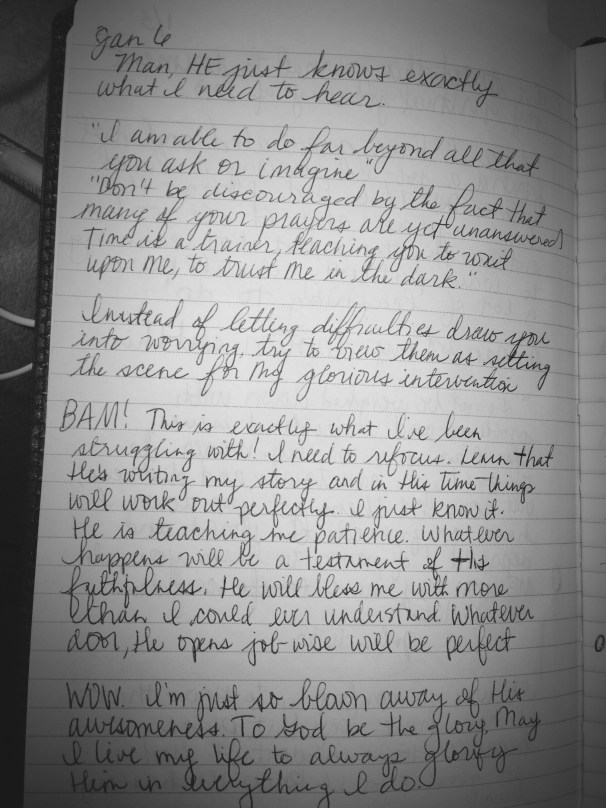 Jan 6
Man, HE just knows exactly
what I need to hear.
"I am able to do far beyond all that
you ask or imagine"
"Don't be discouraged by the fact that
many of your prayers are yet unanswered
Time is a trainer, teaching you to wait
upon me, to trust me in the dark."
Instead of letting difficulties draw you
into worrying, try to view them as setting
the scene for my glorious intervention
BAM! This is exactly what I've been
struggling with! I need to refocus. Learn that
He's writing my story and in His time things
will work out perfectly. I just know it.
He is teaching me patience. Whatever
happens will be a testament of His
faithfulness. He will bless me with more
than I could ever understand. Whatever
door, He opens job-wise will be perfect
WOW. I'm just so blown away of His
awesomeness. To God be the glory. May
I live my life to always glorify
Him in everything I do.